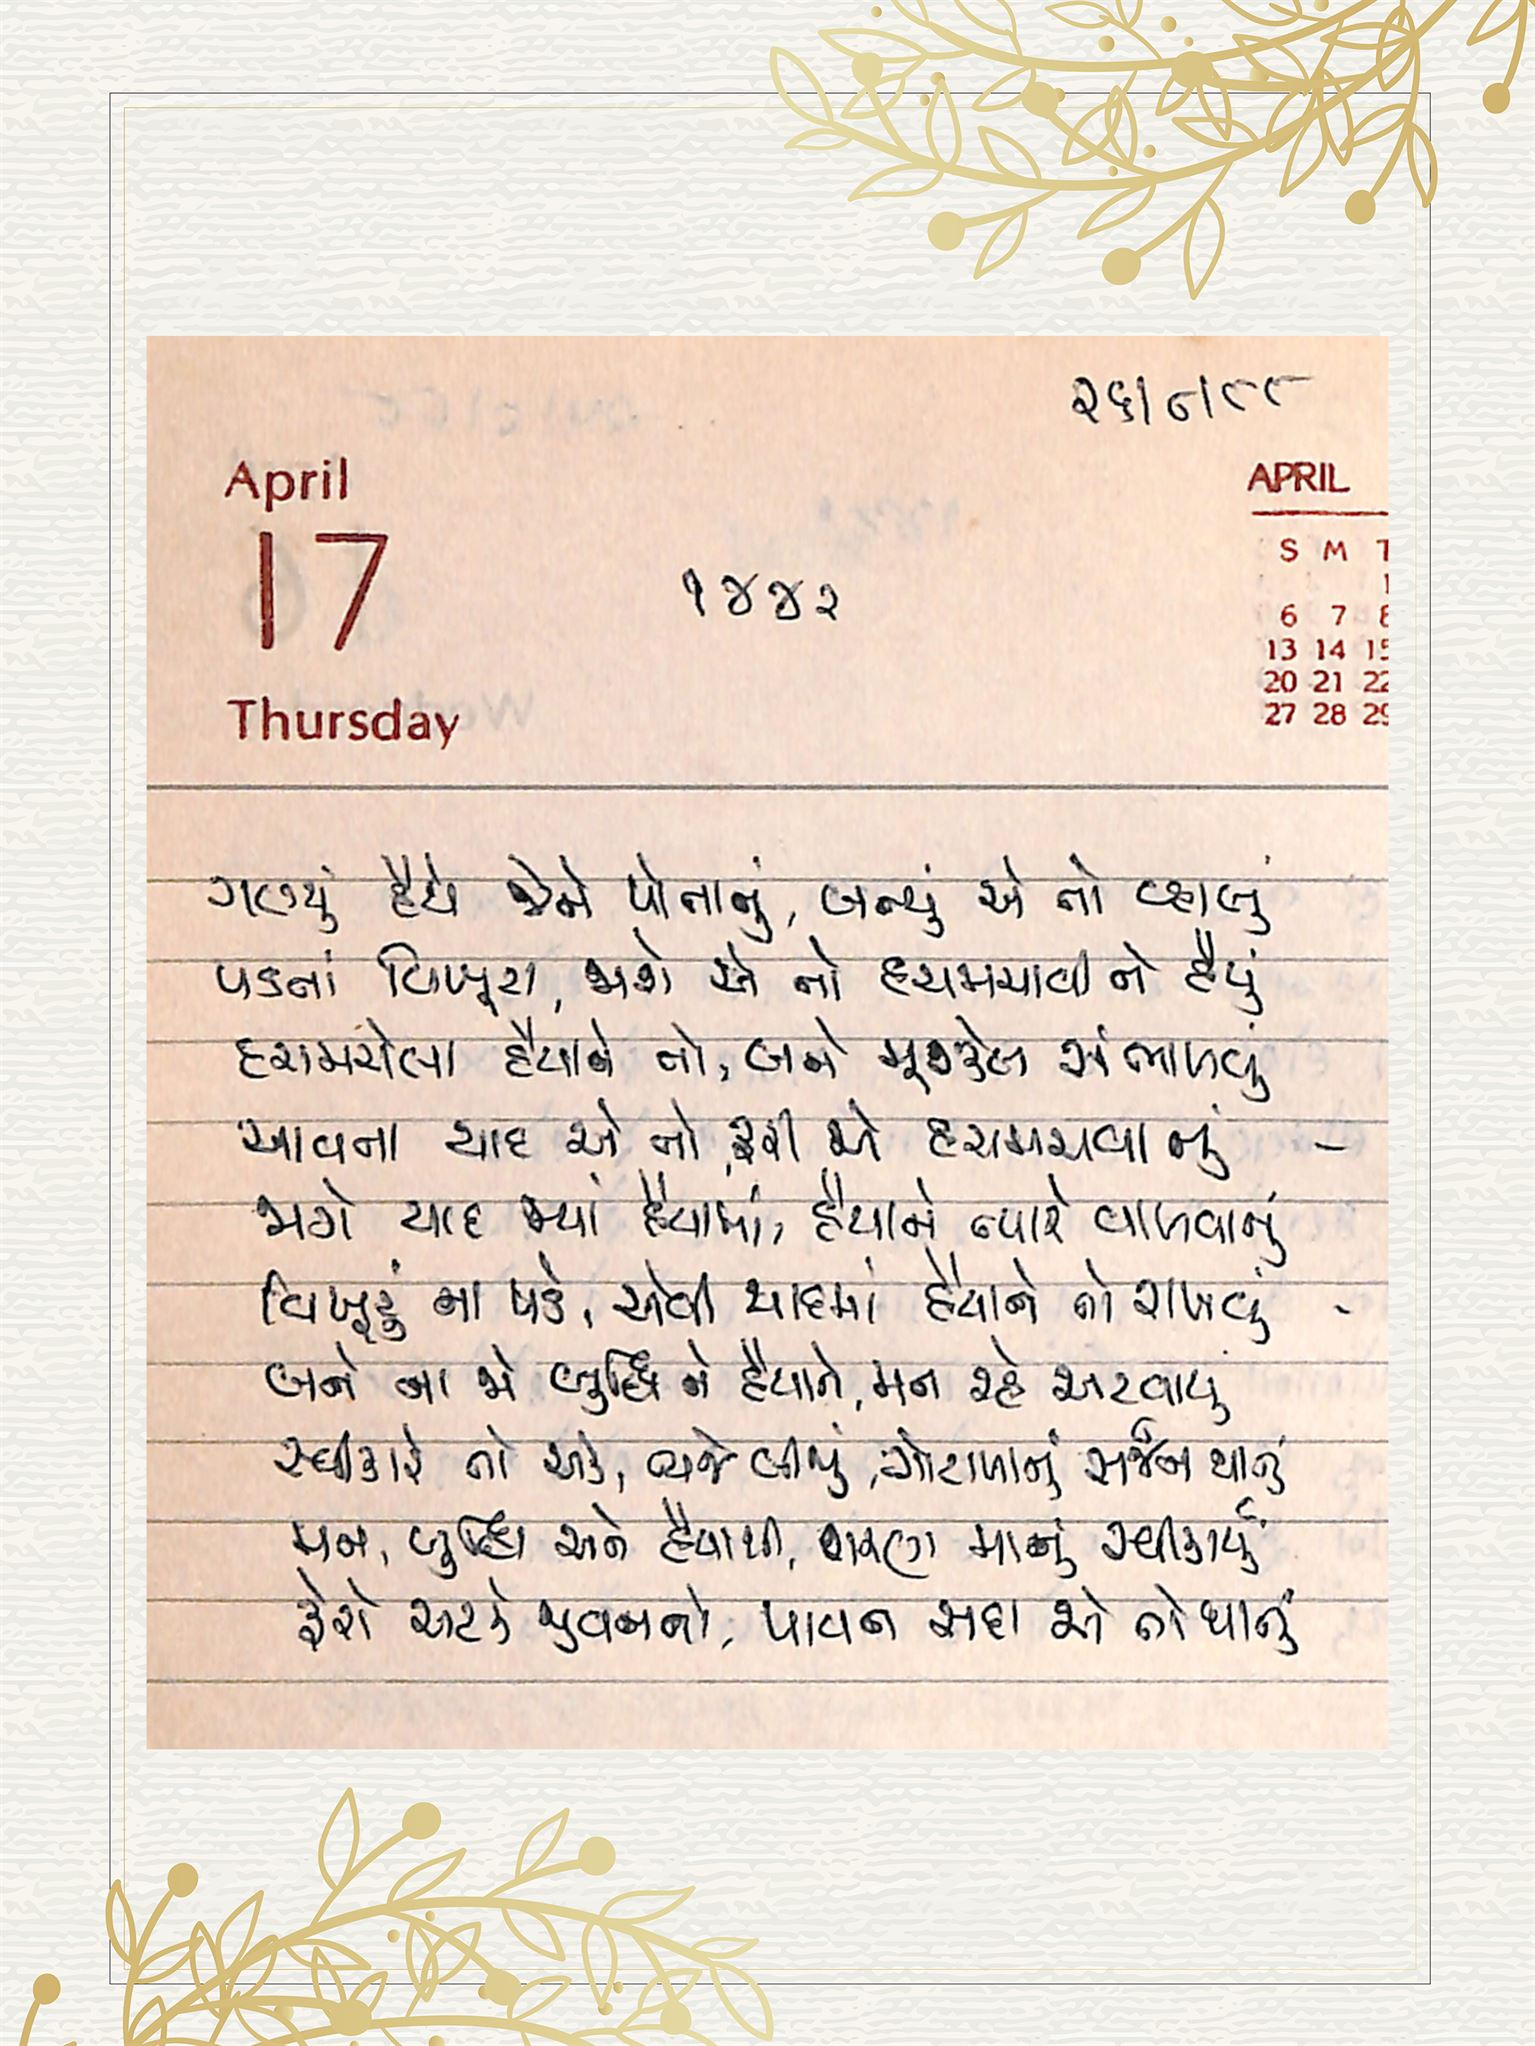 ૨૬/૮/૮૮
April
APRIL
17
S M T
1
6 7 8
૧૪૪૨
13 14 15
20 21 22
Thursday
27 28 29
ગણ્યું હૈયે જેને પોતાનું, બન્યું એ તો વ્હાલું
પડતાં વિખૂટા, જાશે એ તો હચમચાવીને હૈયું
હચમચેલા હૈયાને તો, બને મૂશ્કેલ સંભાળવું
આવતા યાદ એ તો, ફરી એ હચમચવાનું -
જાગે યાદ જ્યાં હૈયામાં, હૈયાને ત્યારે વાળવાનું
વિખૂટું ના પડે, એવી યાદમાં હૈયાને તો રાખવું -
બને ના જો બુદ્ધિ ને હૈયાને, મન રહે અટવાયું
સ્વીકારે તો એક, ત્યજે બીજું, ગોટાળાનું સર્જન થાતું
મન, બુદ્ધિ અને હૈયાથી, શરણ માનું સ્વીકાર્યું
ફેરો અટકે જીવનનો, પાવન સદા એ તો થાતું